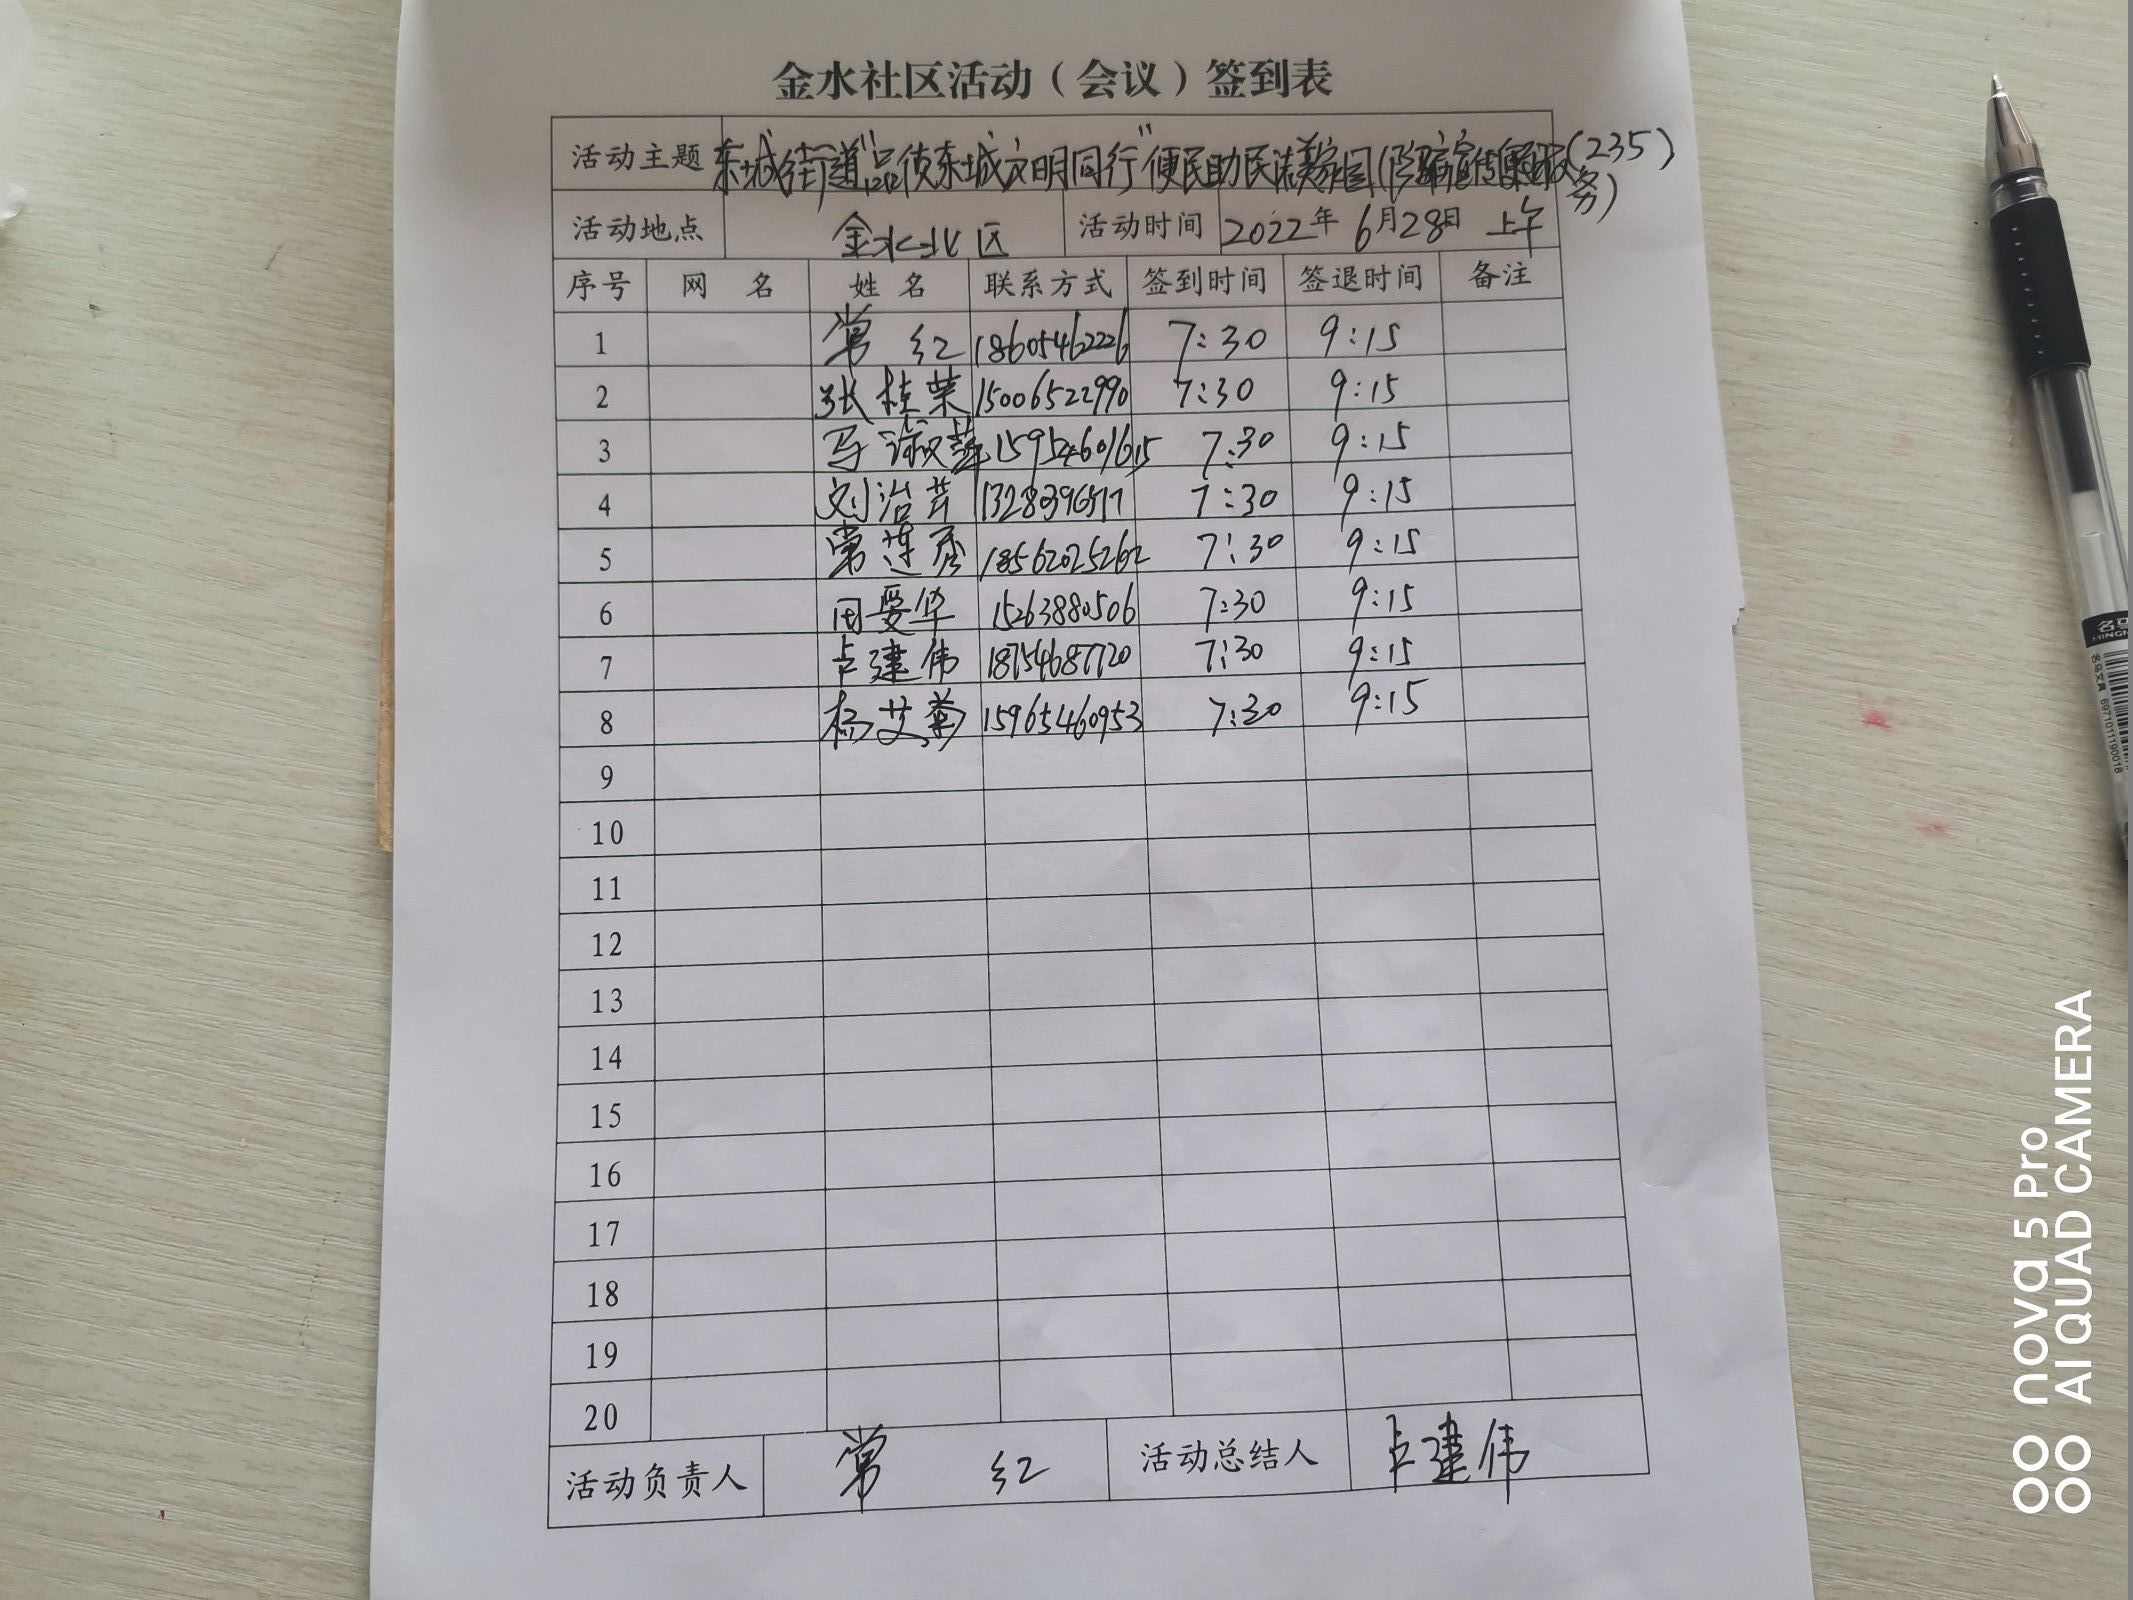 金水社区活动（会议）签到表
活动主题 东城街道"品质东城文明同行"便民助民 美家园( 宣传便民服(235)
务)
活动地点 金水北区 活动时间 2022年 6月28日 上午
序号 网名 姓名 联系方式 签到时间 签退时间 备注
1 常红 18605462226 7:30 9:15
2 张桂荣 15006522990 7:30 9:15
3 马淑萍 15954601615 7:30 9:15
4 刘治芹 7:30 9:15
5 常莲秀 18562025262 7:30 9:15
6 田爱华 15263880506 7:30 9:15
7 卢建伟 18754687720 7:30 9:15
8 杨艾菊 15965460953 7:30 9:15
9
10
11
12
13
14
15
16
17
18
19
20
活动负责人 常红 活动总结人 卢建伟
nova 5 Pro
AI QUAD CAMERA